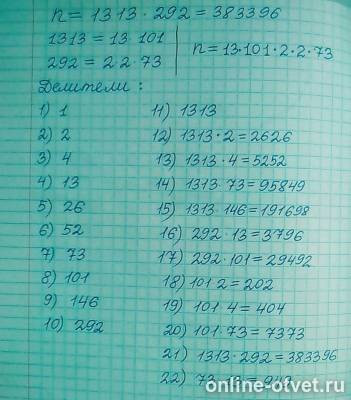 n = 1313 · 292 = 383396
1313 = 13 · 101
292 = 2 2 · 73
n = 13 · 101 · 2 · 2 · 73
Делители :
1) 1
2) 2
3) 4
4) 13
5) 26
6) 52
7) 73
8) 101
9) 146
10) 292
11) 1313
12) 1313 · 2 = 2626
13) 1313 · 4 = 5252
14) 1313 · 73 = 95849
15) 1313 · 146 = 191698
16) 292 · 13 = 3796
17) 292 · 101 = 29492
18) 101 · 2 = 202
19) 101 · 4 = 404
20) 101 · 73 = 7373
21) 1313 · 292 = 383396
22) 73
online-otvet.ru